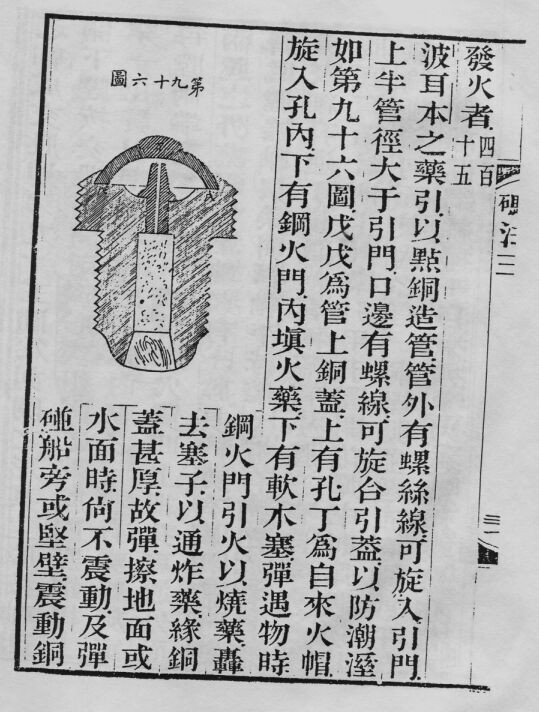 發火者四百十五
波耳本之藥引以點銅造管管外有螺絲線可旋入引門
上半管徑大于引門口邊有螺線可旋合引蓋以防潮溼
如第九十六圖戊戊爲管上銅蓋上有孔丁爲自來火帽
旋入孔內下有鋼火門內塡火藥下有軟木塞彈遇物時
第九十六圖
鋼火門引火以燒藥轟
去塞子以通炸藥緣銅
蓋甚厚故彈擦地面或
水面時尙不震動及彈
碰船旁或堅壁震動銅